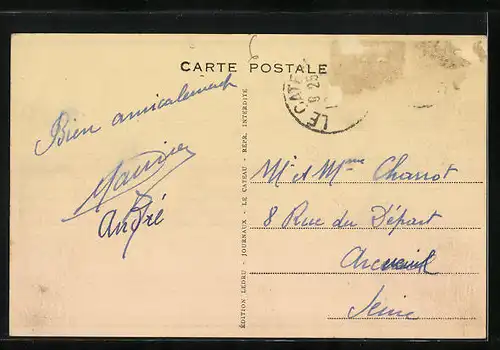 CARTE POSTALE
LE CATE
Bien amicalement
Maurice
André
ÉDITION LEDRU - JOURNAUX - LE CATEAU - REPR. INTERDITE
Mr & Mme Charrot
8 Rue du Départ
Arcueil
Seine